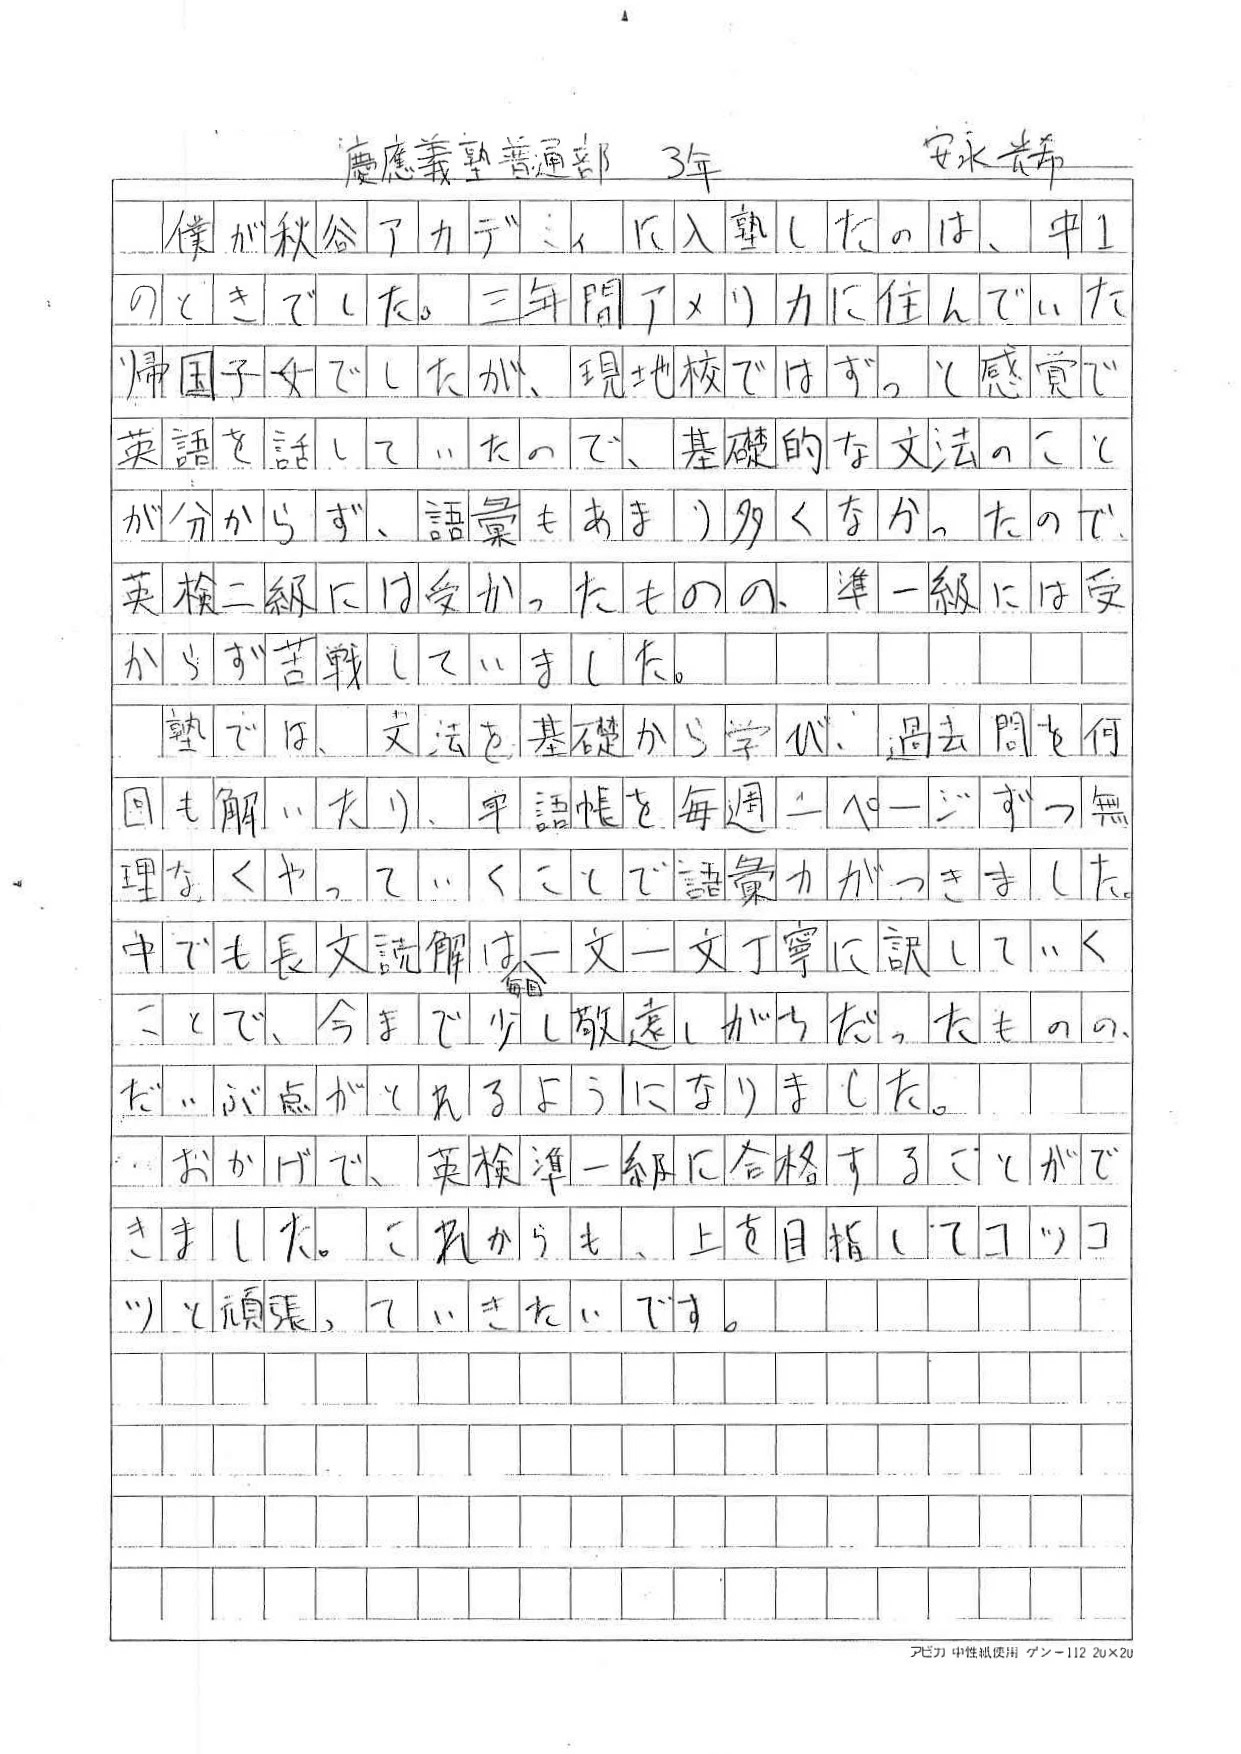 慶應義塾普通部 3年 安永 光希
僕が秋谷アカデミィに入塾したのは、中1
のときでした。三年間アメリカに住んでいた
帰国子女でしたが、現地校ではずっと感覚で
英語を話していたので、基礎的な文法のこと
が分からず、語彙もあまり多くなかったので、
英検二級には受かったものの、準一級には受
からず苦戦していました。
塾では、文法を基礎から学び、過去問を何
回も解いたり、単語帳を毎週二ページずつ無
理なくやっていくことで語彙力がつきました。
中でも長文読解は毎回一文一文丁寧に訳していく
ことで、今まで少し敬遠しがちだったものの、
だいぶ点がとれるようになりました。
おかげで、英検準一級に合格することがで
きました。これからも、上を目指してコツコ
ツと頑張っていきたいです。
アピカ 中性紙使用 ゲンー112 20×20